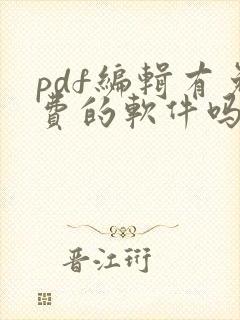 pdf編輯有免
費的軟件吗
晋江珩